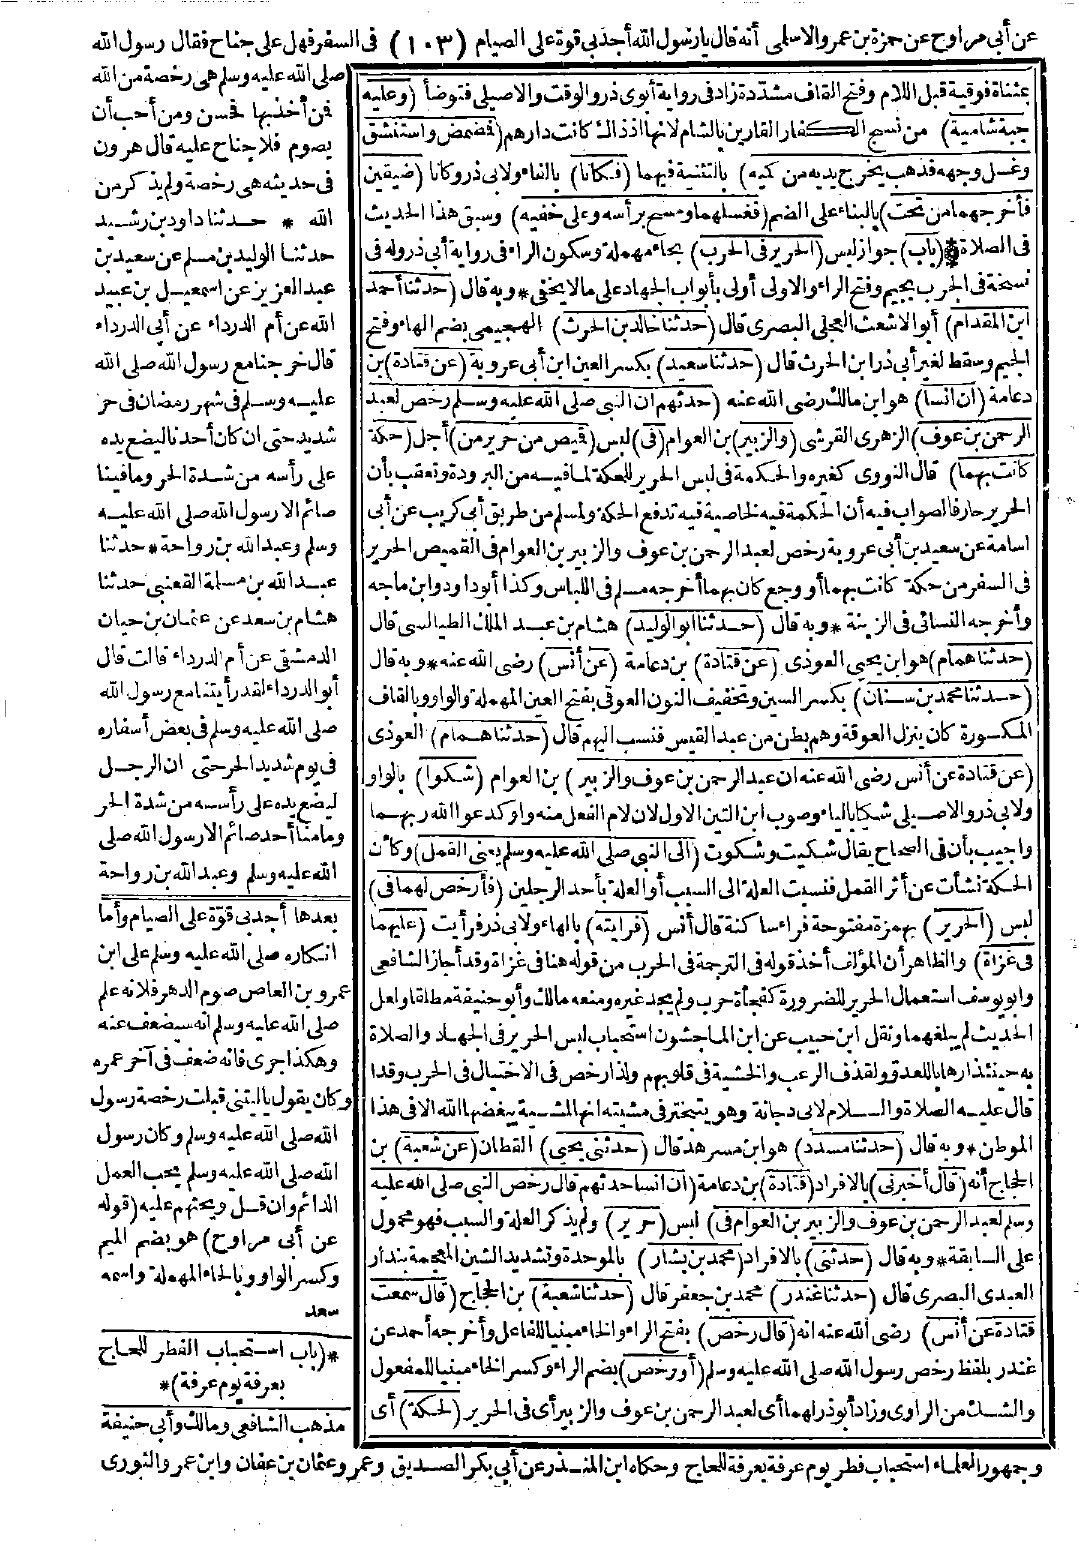 عن أبي مراوح عن حمزة بن عمرو الاسلمى أنه قال يا رسول الله أجد بي قوة على الصيام (١٠٣) فى السفر فهل على جناح فقال رسول الله
صلى الله عليه وسلم هى رخصة من الله
فمن أخذ بها فحسن ومن أحب أن
يصوم فلا جناح عليه قال هرون
فى حديثه هى رخصة ولم يذكر من
الله * حدثنا داود بن رشيد
حدثنا الوليد بن مسلم عن سعيد بن
عبد العزيز عن اسمعيل بن عبيد
الله عن أم الدرداء عن أبي الدرداء
قال خرجنا مع رسول الله صلى الله
عليه وسلم فى شهر رمضان فى حر
شديد حتى ان كان أحدنا ليضع يده
على رأسه من شدة الحر وما فينا
صائم الا رسول الله صلى الله عليه
وسلم وعبد الله بن رواحة * حدثنا
عبد الله بن مسلمة القعنبي حدثنا
هشام بن سعد عن عثمان بن حيان
الدمشقى عن أم الدرداء قالت قال
أبو الدرداء لقد رأيتنا مع رسول الله
صلى الله عليه وسلم فى بعض أسفاره
فى يوم شديد الحر حتى ان الرجل
ليضع يده على رأسه من شدة الحر
وما منا أحد صائم الا رسول الله صلى
الله عليه وسلم وعبد الله بن رواحة
بمثناة فوقية قبل اللام وفتح القاف مشدّدة زاد فى رواية أبوى ذر والوقت والاصيلى فتوضأ (وعليه
جبة شامية) من نسج الكفار القارين بالشام لانها اذ ذاك كانت دارهم (فمضمض واستنشق
وغسل وجهه فذهب يخرج يديه من كميه) بالتثنية فيهما (فكانا) بالفاء ولابى ذر وكانا (ضيقين
فأخرجهما من تحت) بالبناء على الضم (فغسلهما ومسح برأسه وعلى خفيه) وسبق هذا الحديث
فى الصلاة * (باب) جواز لبس (الحرير فى الحرب) بحاء مهملة وسكون الراء فى رواية أبى ذر وله فى
نسخة فى الجرب بجيم وفتح الراء والاولى أولى بأبواب الجهاد على ما لا يخفى * وبه قال (حدثنا أحمد
ابن المقدام) أبو الاشعث العجلى البصرى قال (حدثنا خالد بن الحرث) الهجيمى بضم الهاء وفتح
الجيم وسقط لغير أبى ذر ابن الحرث قال (حدثنا سعيد) بكسر العين ابن أبى عروبة (عن قتادة) بن
دعامة (ان انسا) هو ابن مالك رضى الله عنه (حدثهم ان النبى صلى الله عليه وسلم رخص لعبد
الرحمن بن عوف) الزهرى القرشى (والزبير) بن العوام (فى) لبس (قميص من حرير من) أجل (حكة
كانت بهما) قال النووى كغيره والحكمة فى لبس الحرير للحكة لما فيه من البرودة وتعقب بأن
الحرير حار فالصواب فيه أن الحكمة فيه لخاصية فيه تدفع الحكة ولمسلم من طريق أبى كريب عن أبى
اسامة عن سعيد بن أبى عروبة رخص لعبد الرحمن بن عوف والزبير بن العوام فى القميص الحرير
فى السفر من حكة كانت بهما أو وجع كان بهما أخرجه مسلم فى اللباس وكذا أبو داود وابن ماجه
وأخرجه النسائى فى الزينة * وبه قال (حدثنا أبو الوليد) هشام بن عبد الملك الطيالسى قال
(حدثنا همام) هو ابن يحيى العوذى (عن قتادة) بن دعامة (عن أنس) رضى الله عنه * وبه قال
(حدثنا محمد بن سنان) بكسر السين وتخفيف النون العوقى بفتح العين المهملة والواو وبالقاف
المكسورة كان ينزل العوقة وهم بطن من عبد القيس فنسب اليهم قال (حدثنا همام) العوذى
(عن قتادة عن أنس رضى الله عنه ان عبد الرحمن بن عوف والزبير) بن العوام (شكوا) بالواو
ولابى ذر والاصيلى شكيا بالياء وصوب ابن التين الاول لان لام الفعل منه واو كدعوا الله ربهما
واجيب بأن فى الصحاح يقال شكيت وشكوت (الى النبى صلى الله عليه وسلم يعنى القمل) وكأن
الحكة نشأت عن أثر القمل فنسبت العلة الى السبب أو العلة بأحد الرجلين (فأرخص لهما فى)
لبس (الحرير) بهمزة مفتوحة فراء ساكنة قال أنس (فرايته) بالهاء ولابى ذر فرأيت (عليهما
فى غزاة) والظاهر أن المؤلف أخذ قوله فى الترجمة فى الحرب من قوله هنا فى غزاة وقد أجاز الشافعى
وابو يوسف استعمال الحرير للضرورة كفجأة حرب ولم يجد غيره ومنعه مالك وأبو حنيفة مطلقا ولعل
الحديث لم يبلغهما ونقل ابن حبيب عن ابن الماجشون استحباب لبس الحرير فى الجهاد والصلاة
به حينئذ ارهابا للعدو ولقذف الرعب والخشية فى قلوبهم ولذا رخص فى الاختيال فى الحرب وقد
قال عليه الصلاة والسلام لابى دجانة وهو يتبختر فى مشيته انها لمشية يبغضها الله الا فى هذا
الموطن * وبه قال (حدثنا مسدد) هو ابن مسرهد قال (حدثنى يحيى) القطان (عن شعبة) بن
الحجاج أنه (قال أخبرنى) بالافراد (قتادة) بن دعامة (ان انسا حدثهم قال رخص النبى صلى الله عليه
وسلم لعبد الرحمن بن عوف والزبير بن العوام فى) لبس (حرير) ولم يذكر العلة والسبب فهو محمول
على السابقة * وبه قال (حدثنى) بالافراد (محمد بن بشار) بالموحدة وتشديد الشين المعجمة بندار
العبدى البصرى قال (حدثنا غندر) محمد بن جعفر قال (حدثنا شعبة) بن الحجاج (قال سمعت
قتادة عن أنس) رضى الله عنه انه (قال رخص) بفتح الراء والخاء مبنيا للفاعل وأخرجه أحمد عن
غندر بلفظ رخص رسول الله صلى الله عليه وسلم (أو رخص) بضم الراء وكسر الخاء مبنيا للمفعول
والشك من الراوى وزاد أبو ذر لهما أى لعبد الرحمن بن عوف والزبير أى فى الحرير (لحكة) أى
بعدها أجد بى قوّة على الصيام وأما
انكاره صلى الله عليه وسلم على ابن
عمرو بن العاص صوم الدهر فلانه علم
صلى الله عليه وسلم انه سيضعف عنه
وهكذا جرى فانه ضعف فى آخر عمره
وكان يقول يا ليتنى قبلت رخصة رسول
الله صلى الله عليه وسلم وكان رسول
الله صلى الله عليه وسلم يحب العمل
الدائم وان قل ويحثهم عليه (قوله
عن أبى مراوح) هو بضم الميم
وكسر الواو وبالحاء المهملة واسمه
سعد
*(باب استحباب الفطر للحاج
بعرفة يوم عرفة)*
مذهب الشافعى ومالك وأبى حنيفة
وجمهور العلماء استحباب فطر يوم عرفة بعرفة للحاج وحكاه ابن المنذر عن أبى بكر الصديق وعمر وعثمان بن عفان وابن عمر والثورى